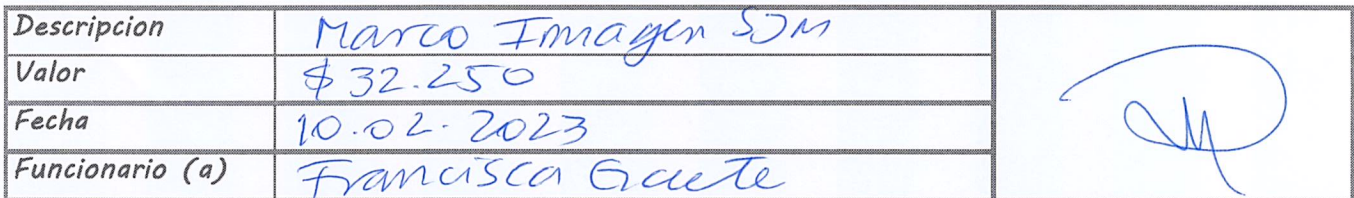 Descripcion Marco Immagen SJM
Valor $32.250
Fecha 10.02.2023
Funcionario (a) Francisca Gaete